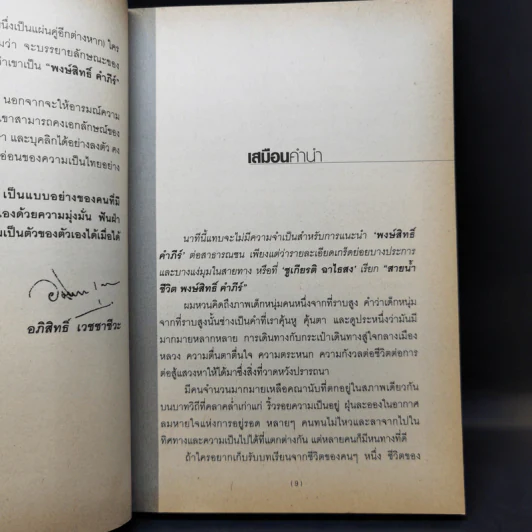 นึ่งเป็นแผ่นคู่อีกต่างหาก) ใคร
มว่า จะบรรยายลักษณะของ
ว่าเขาเป็น “พงษ์สิทธิ์ คำภีร์”
นอกจากจะให้อารมณ์ความ
เขาสามารถคงเอกลักษณ์ของ
า และบุคลิกได้อย่างลงตัว คง
อ่อนของความเป็นไทยอย่าง
เป็นแบบอย่างของคนที่มี
เองด้วยความมุ่งมั่น ฟันฝ่า
มเป็นตัวของตัวเองได้เมื่อได้
อภิสิทธิ์ เวชชาชีวะ
เสมือนคำนำ
นาทีนี้แทบจะไม่มีความจำเป็นสำหรับการแนะนำ ‘พงษ์สิทธิ์
คำภีร์’ ต่อสาธารณชน เพียงแต่ว่ารายละเอียดเกร็ดย่อยบางประการ
และบางแง่มุมในสายทาง หรือที่ ‘ชูเกียรติ ฉาไธสง’ เรียก “สายน้ำ
ชีวิต พงษ์สิทธิ์ คำภีร์”
ผมหวนคิดถึงภาพเด็กหนุ่มคนหนึ่งจากที่ราบสูง คำว่าเด็กหนุ่ม
จากที่ราบสูงนั้นช่างเป็นคำที่เราคุ้นหู คุ้นตา และดูประหนึ่งว่ามันมี
มากมายหลากหลาย การเดินทางกับกระเป๋าเดินทางสู่ใจกลางเมือง
หลวง ความตื่นตาตื่นใจ ความตระหนก ความกังวลต่อชีวิตต่อการ
ต่อสู้แสวงหาให้ได้มาซึ่งสิ่งที่วาดหวังปรารถนา
มีคนจำนวนมากมายเหลือคณานับที่ตกอยู่ในสภาพเดียวกัน
บนบาทวิถีที่คลาคล่ำเก่าแก่ ริ้วรอยความเป็นอยู่ ฝุ่นละอองในอากาศ
ลมหายใจแห่งการอยู่รอด หลายๆ คนทนไม่ไหวและลาจากไปใน
ทิศทางและความเป็นไปได้ที่แตกต่างกัน แต่หลายคนก็มีหนทางที่ดี
ถ้าใครอยากเก็บรับบทเรียนจากชีวิตของคนๆ หนึ่ง ชีวิตของ
(9)